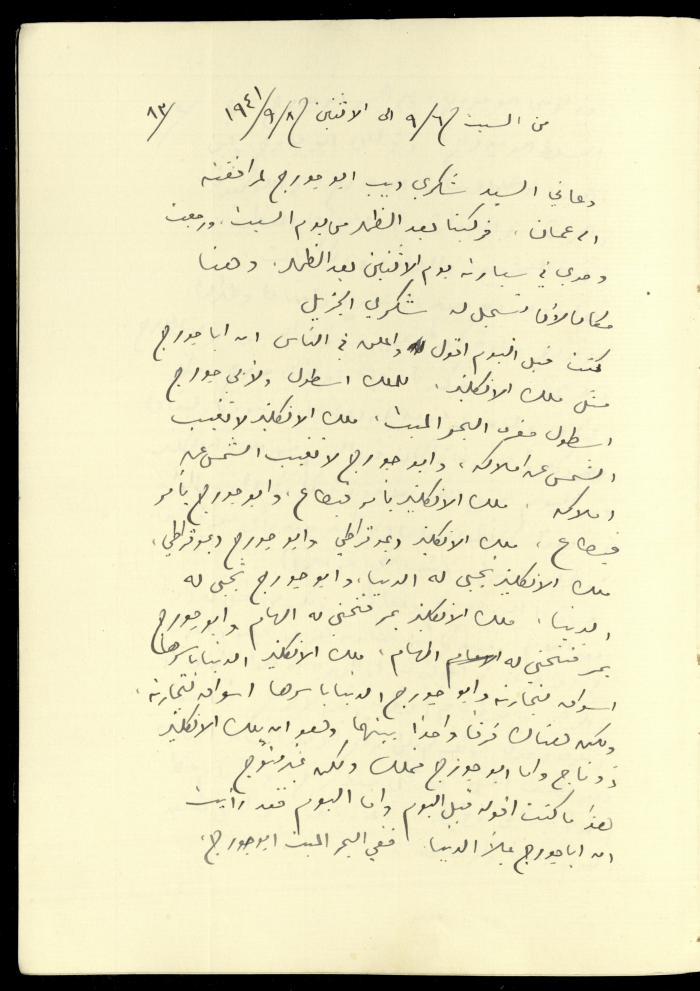 من السبت ٦/٩ الى الاثنين ٨/٩/١٩٤١ /٨٣
دعاني السيد شكري ديب ابو جورج لمرافقته
الى عمان. فركبنا بعد الظهر من يوم السبت، ورجعت
وحدي في سيارته يوم الاثنين بعد الظهر. وهنا
مكاننا لأن نسجل له شكري الجزيل
كنت قبل اليوم اقول واعلن في الناس ان ابا جورج
مثل ملك الانكليز. للملك اسطول ولأبي جورج
اسطول البحر الميت، ملك الانكليز لا تغيب
الشمس عن املاكه، وابو جورج لا تغيب الشمس عن
املاكه. ملك الانكليز يأمر فيطاع، وابو جورج يأمر
فيطاع، ملك الانكليز ديموقراطي وابو جورج ديموقراطي،
ملك الانكليز تجبى له الدنيا، وابو جورج تجبى له
الدنيا. ملك الانكليز يمر فتنحني له الهام وابو جورج
يمر فتنحني له الهام، ملك الانكليز الدنيا باسرها
اسواق لتجارته وابو جورج الدنيا باسرها اسواق لتجارته.
ولكن هناك فرقا واحدا بينهما وهو ان ملك الانكليز
ذو تاج واما ابو جورج فملك ولكن غير متوج
هذا ما كنت اقوله قبل اليوم واما اليوم فقد رأيت
ان ابا جورج يملأ الدنيا. ففي البحر الميت ابو جورج،